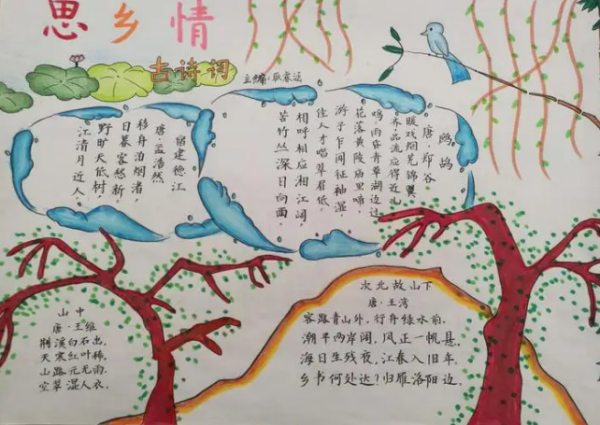 思乡情
古诗词
鹧鸪
唐·郑谷
暖戏烟芜锦翼
齐,品流应得近山
鸡,雨昏青草湖边过,
花落黄陵庙里啼,
游子乍闻征袖湿,
佳人才唱翠眉低,
相呼相应湘江阔,
苦竹丛深日向西,
宿建德江
唐·孟浩然
移舟泊烟渚,
日暮客愁新,
野旷天低树,
江清月近人。
山中
唐·王维
荆溪白石出,
天寒红叶稀,
山路元无雨,
空翠湿人衣。
次北故山下
唐·王湾
客路青山外,行舟绿水前。
潮平两岸阔,风正一帆悬。
海日生残夜,江春入旧年。
乡书何处达?归雁洛阳边。